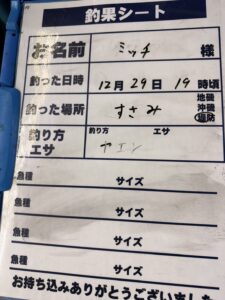 釣果シート
お名前 ミッチ 様
釣った日時 12月29日19時頃
釣った場所 すさみ 地磯 沖磯 堤防
釣り方 エサ 釣り方 ヤエン エサ
魚種 サイズ
魚種 サイズ
魚種 サイズ
魚種 サイズ
お持ち込みありがとうございました